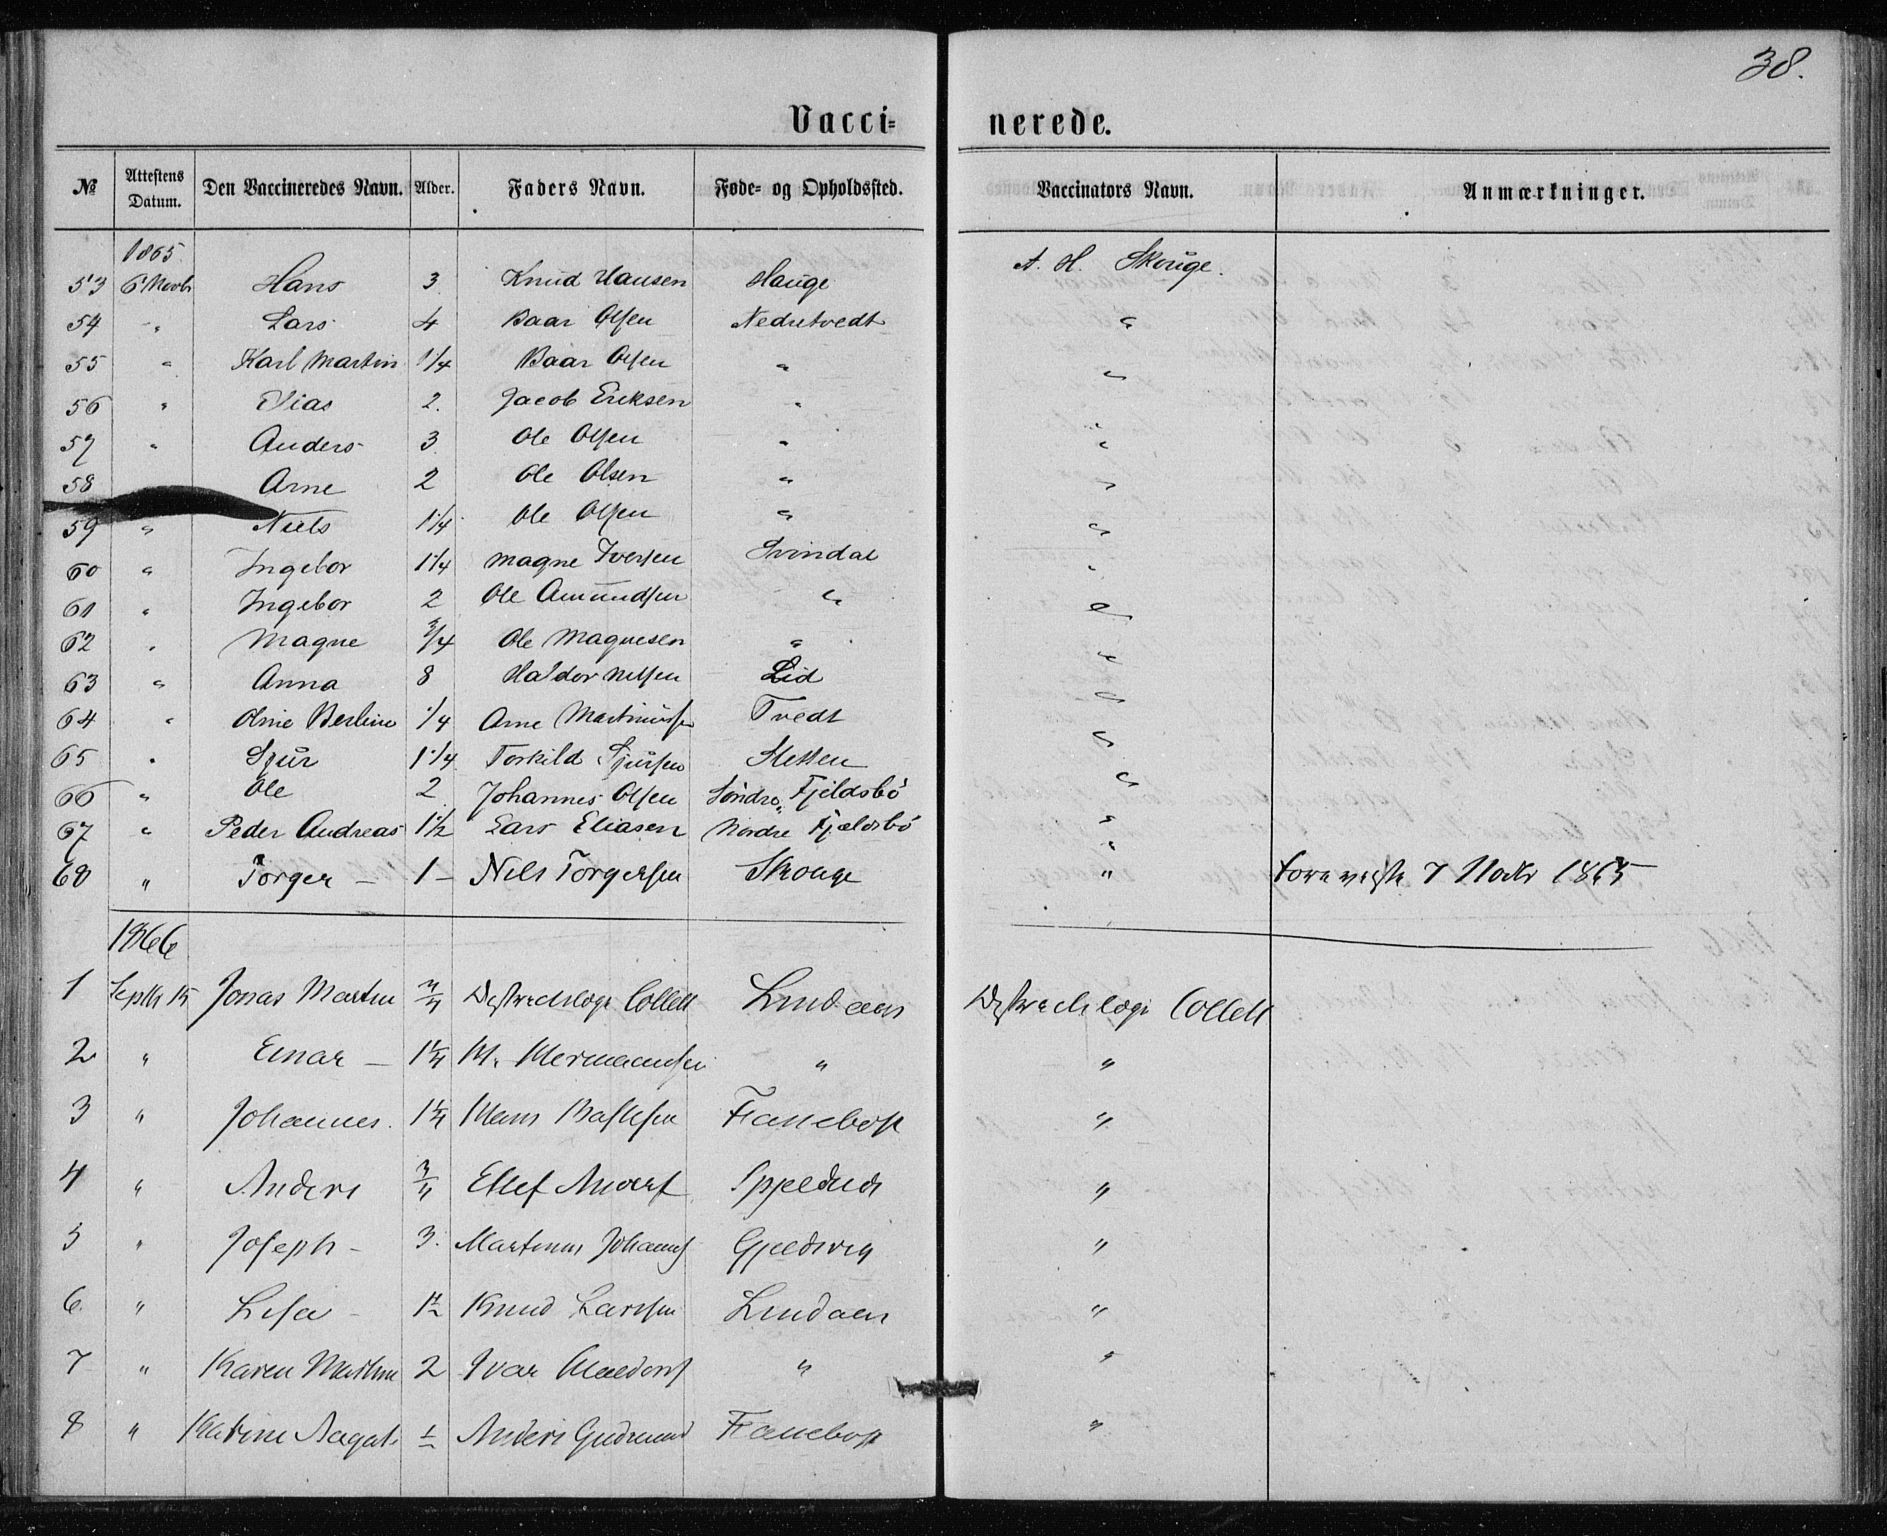 38.
Vacci= nerede.
№ Attestens Datum. Den Vaccineredes Navn. Alder. Faders Navn. Føde= og Opholdssted. Vaccinators Navn. Anmærkninger.
1865
53 6 Novb Hans 3 Knud Hansen Hauge A. H. Skouge.
54 " Lars 4 Baar Olsen Nedretvedt "
55 " Karl Martin 1 1/4 Baar Olsen " "
56 " Elias 2. Jacob Eriksen " "
57 " Anders 3 Ole Olsen " "
58 Arne 2 Ole Olsen " "
59 " Niels 1 1/4 Ole Olsen " "
60 " Ingebor 1 1/4 Magne Iversen Svindal "
61 " Ingebor 2 Ole Amundsen " "
62 " Magne 3/4 Ole Magnesen " "
63 " Anna 8 Haldor Nilsen Lid "
64 " Berline 1/4 Arne Martinussen Tvedt "
65 " Sjur 1 1/4 Torkild Sjursen Sletten "
66 " Ole 2 Johannes Olsen Söndre Fjeldsbö "
67 " Peder Andreas 1 1/2 Lars Eliasen Nordre Fjeldsbö "
68 " Torger – 1 – Nils Torgersen Skouge " 7 Novbr 1865
1866
1 Septbr 15 Jonas Martin 3/4 Distrectslæge Collett Lindaas Distrectslæge Collett
2 " Einar – 1 1/4 Hermansen " "
3 " Johannes. 1 1/4 Fanebost "
4 " Anders 3/4 Ellef "
5 " Joseph – 3. Martinus Johans Gjeldsvig "
6. " Lisa – 1 1/2 Knud Larssen Lindaas "
7 " Karen Marthe 2 Ivar " "
8 " Anders Gudmund Fanebost "